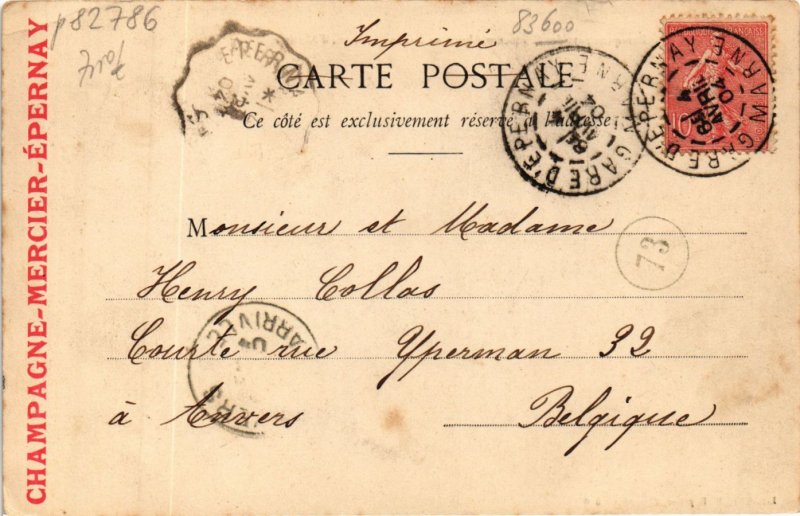 p82786
83600
Imprimé
CARTE POSTALE
Ce côté est exclusivement réservé à l'adresse
CHAMPAGNE-MERCIER-ÉPERNAY
GARE D'EPERNAY MARNE
AVRIL
04
GARE D'EPERNAY MARNE
AVRIL
04
10
73
Monsieur et Madame
Henry Collas
Courte rue Yperman 32
à Anvers Belgique
ARRIVÉ